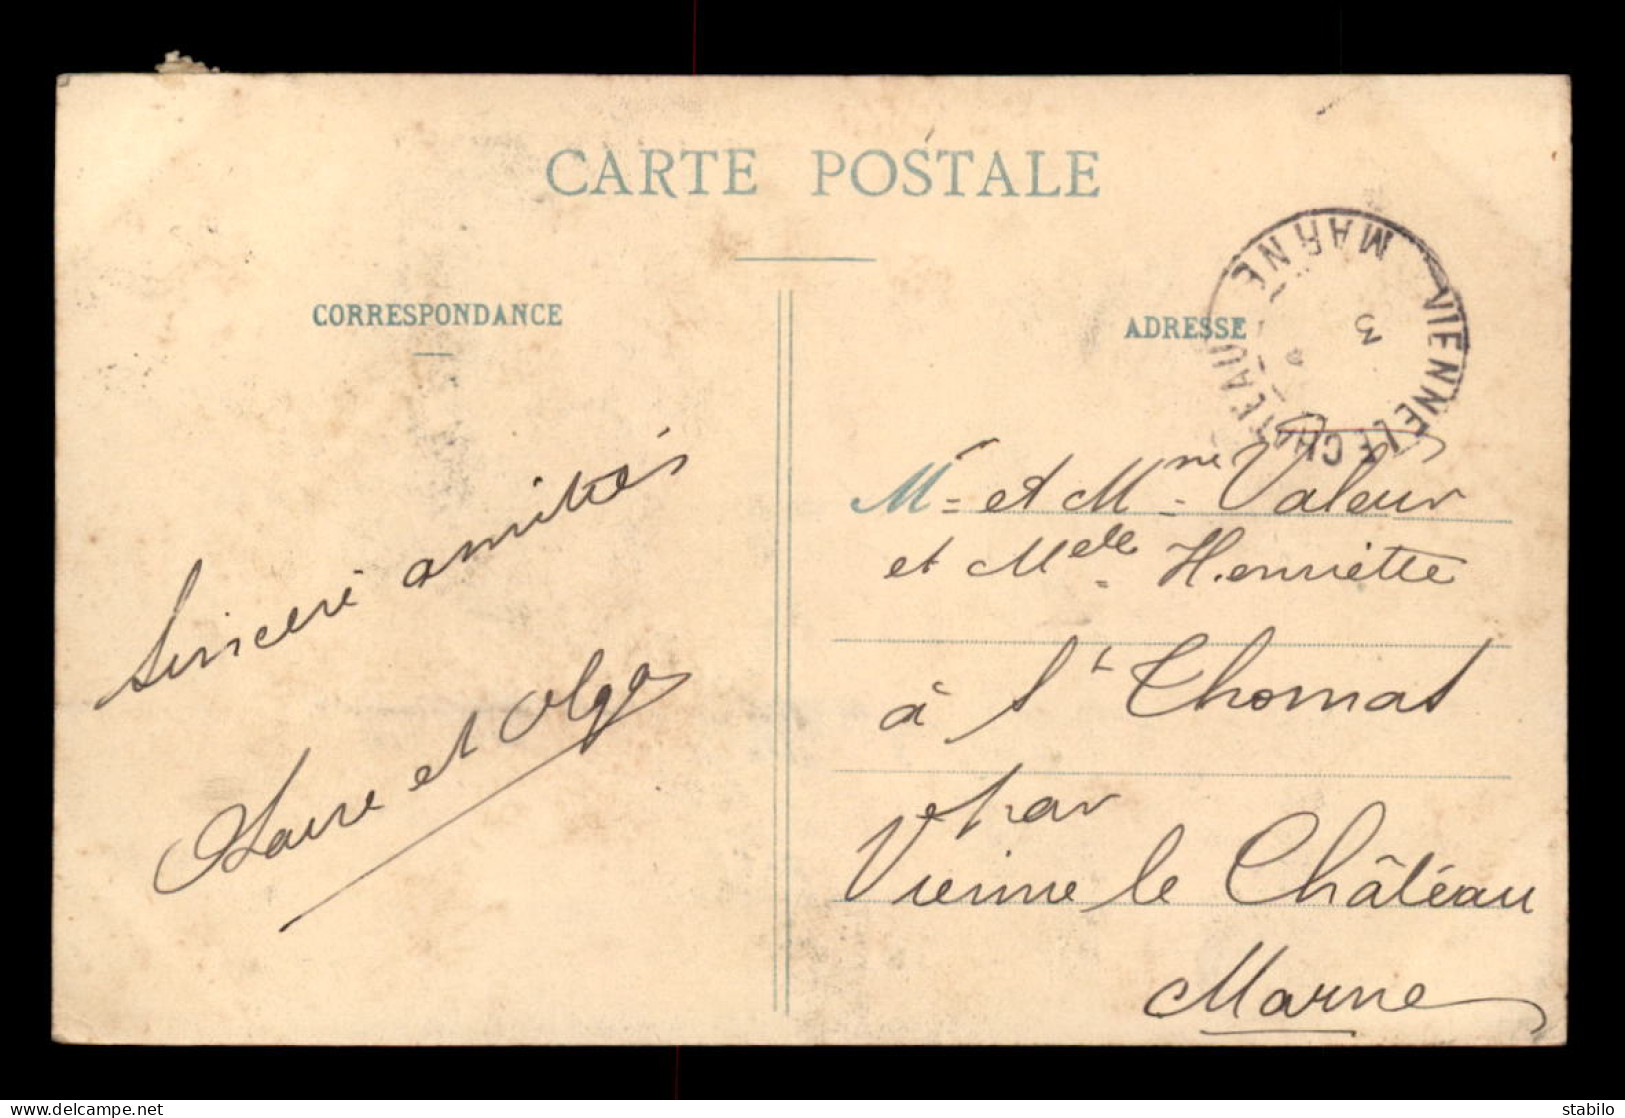 CARTE POSTALE
CORRESPONDANCE
ADRESSE
MARNE
VIENNE LE CHATEAU
3
Sincère amitiés
Laure et Olga
M= et Mme= Valeur
et Melle Henriette
à St Thomas
par
Vienne le Château
Marne
delcampe.net stabilo